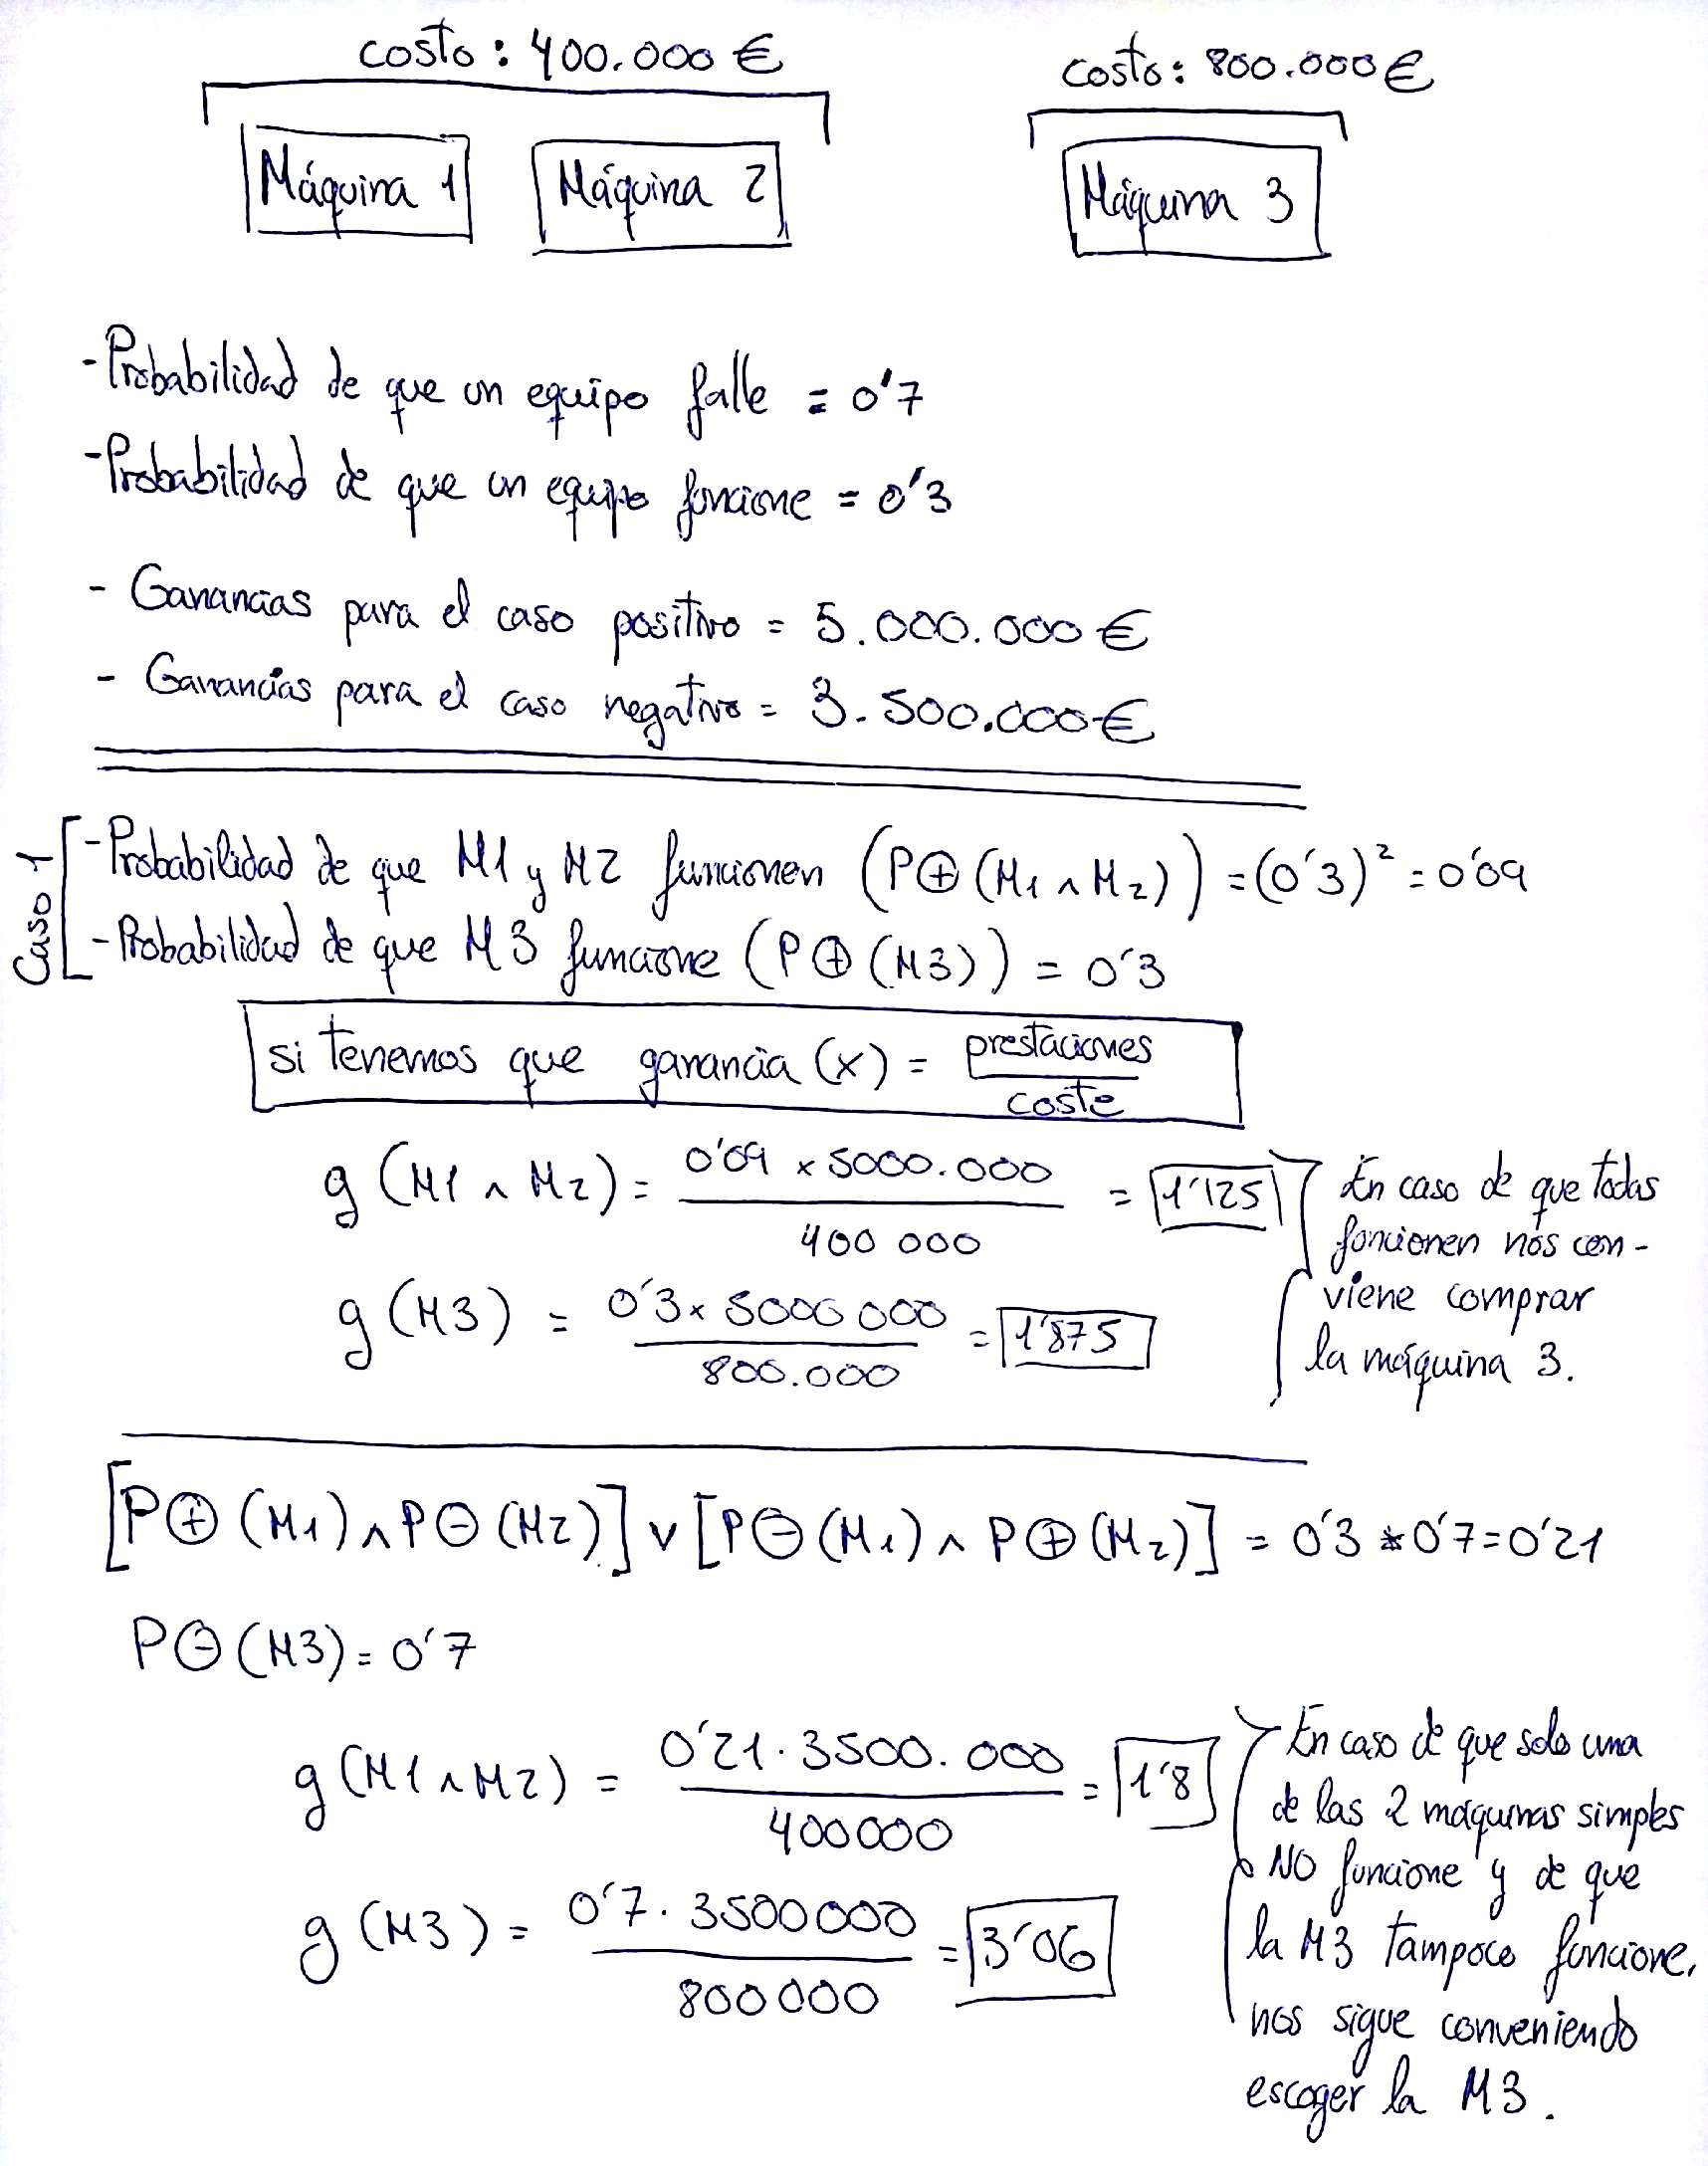 costo: 400.000 €
costo: 800.000 €
Máquina 1
Máquina 2
Máquina 3
- Probabilidad de que un equipo falle = 0'7
- Probabilidad de que un equipo funcione = 0'3
- Ganancias para el caso positivo = 5.000.000 €
- Ganancias para el caso negativo = 3.500.000 €
Caso 1
- Probabilidad de que M1 y M2 funcionen (P⊕(M1 ∧ M2)) = (0'3)² = 0'09
- Probabilidad de que M3 funcione (P⊕(M3)) = 0'3
si tenemos que ganancia (x) = prestaciones
coste
g (M1 ∧ M2) = 0'09 x 5000.000 = 1'125
400 000
En caso de que todas
funcionen nos con-
viene comprar
la máquina 3.
g (M3) = 0'3 x 5000 000 = 1'875
800.000
[P⊕(M1) ∧ P⊖(M2)] ∨ [P⊖(M1) ∧ P⊕(M2)] = 0'3 * 0'7 = 0'21
P⊖(M3) = 0'7
g (M1 ∧ M2) = 0'21 · 3500.000 = 1'8
400000
g (M3) = 0'7 · 3500000 = 3'06
800000
En caso de que solo una
de las 2 máquinas simples
NO funcione y de que
la M3 tampoco funcione,
nos sigue conveniendo
escoger la M3.